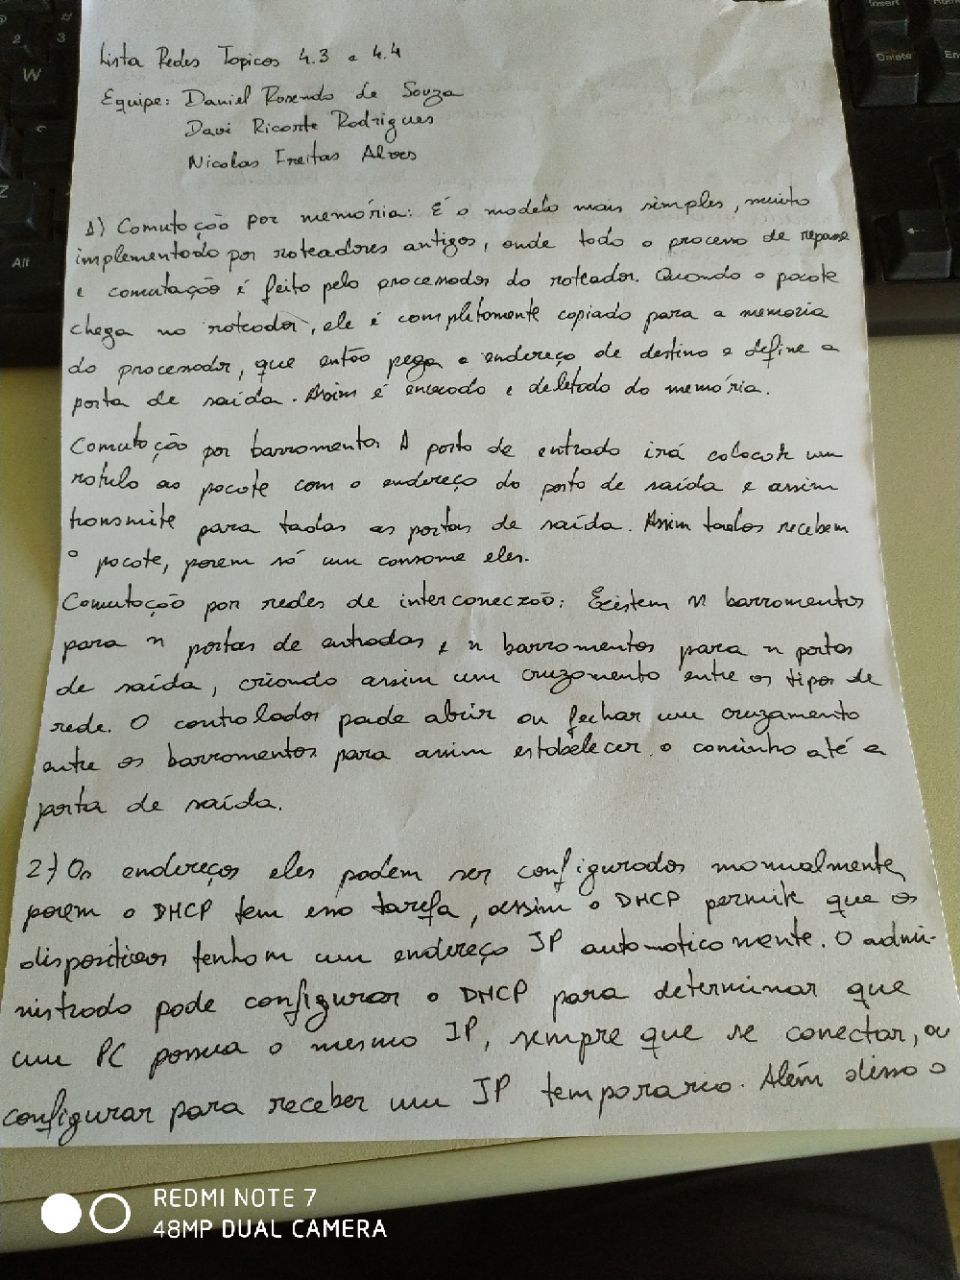 Lista Redes Topicos 4.3 e 4.4
Equipe: Daniel Rosendo de Souza
Davi Ricarte Rodrigues
Nicolas Freitas Alves
1) Comutação por memória: É o modelo mais simples, muito
implementado por roteadores antigos, onde todo o processo de repasse
e comutação é feito pelo processador do roteador. Quando o pacote
chega no roteador, ele é completamente copiado para a memoria
do processador, que então pega o endereço de destino e define a
porta de saída. Assim é enviado e deletado da memória.
Comutação por barramento: A porta de entrada irá colocar um
rotulo ao pacote com o endereço da porta de saída e assim
transmite para todas as portas de saída. Assim todos recebem
o pacote, porem só um consome eles.
Comutação por redes de interconeczão: Existem n barramentos
para n portas de entradas e n barramentos para n portas
de saída, criando assim um cruzamento entre os tipos de
rede. O controlador pode abrir ou fechar um cruzamento
entre os barramentos para assim estabelecer o caminho até a
porta de saída.
2) Os endereços eles podem ser configurados manualmente,
porem o DHCP tem essa tarefa, assim o DHCP permite que os
dispositivos tenham um endereço IP automaticamente. O admi-
nistrado pode configurar o DHCP para determinar que
um PC possua o mesmo IP, sempre que se conectar, ou
configurar para receber um IP temporario. Além disso o
REDMI NOTE 7
48MP DUAL CAMERA
2
3
W
Z
Alt
Insert
Delete